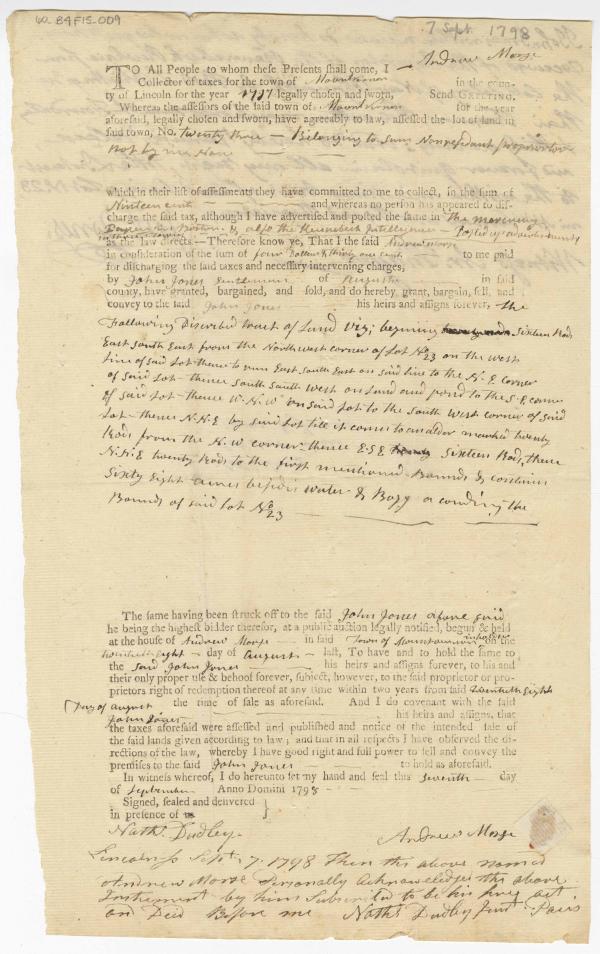 60. 84F15.009
7 Sept. 1798
TO All People to whom these Presents shall come, I Andrew Morse
Collector of taxes for the town of Mountvernon in the coun-
ty of Lincoln for the year 1797 legally chosen and sworn, Send GREETING.
Whereas the assessors of the said town of Mountvernon for the year
aforesaid, legally chosen and sworn, have agreeably to law, assessed the lot of land in
said town, No. twenty three Belonging to sum Nonresedant proprietor
Not by me
which in their list of assessments they have committed to me to collect, in the sum of
Ninteen and whereas no person has appeared to dis-
charge the said tax, although I have advertised and posted the same in the
Boston & also the Kennebeck Intelligencer Posted up advertisments
as the law directs.—Therefore know ye, That I the said Andrew Morse
in consideration of the sum of four Dollars & thirty one cents to me paid
for discharging the said taxes and necessary intervening charges,
by John Jones Gentleman of Augusta in said
county, have granted, bargained, and sold, and do hereby grant, bargain, sell, and
convey to the said John Jones his heirs and assigns forever, the
Following Discribed tract of Land Viz; begining sixteen Rods
East South East from the Northwest corner of Lot No 23 on the west
line of said Lot thence to run East South East on said line to the N. E Corner
of said Lot thence South South West on Land and pond to the S. E corner
of said Lot thence W. N. W on said Lot to the South West corner of said
Lot thence N. N. E by said Lot till it comes to an alder marked twenty
Rods from the N. W corner thence E. S. E sixteen Rod, thence
N. N. E twenty Rods to the first mentioned Bounds & contains
Sixty Eight acres besides water & Bogg acording the
Bounds of said Lot No 23
The same having been struck off to the said John Jones afore said
he being the highest bidder therefor, at a public auction legally notified, begun & held
at the house of Andrew Morse in said Town of Mountvernon on the
twentieth Eight day of August last, To have and to hold the same to
the said John Jones his heirs and assigns forever, to his and
their only proper use & behoof forever, subject, however, to the said proprietor or pro-
prietors right of redemption thereof at any time within two years from said twentieth Eight
Day of August the time of sale as aforesaid. And I do covenant with the said
John Jones his heirs and assigns, that
the taxes aforesaid were assessed and published and notice of the intended sale of
the said lands given according to law; and that in all respects I have observed the di-
rections of the law, whereby I have good right and full power to sell and convey the
premises to the said John Jones to hold as aforesaid.
In witness whereof, I do hereunto set my hand and seal this seventh day
of September Anno Domini 1798
Signed, sealed and delivered }
in presence of
Nathl. Dudley.
Andrew Morse
Lincoln ss Sept. 7. 1798 Then the above named
Andrew Morse Personally Acknowledged the above
Instrument by him Subscribd to be his free act
and Deed Before me Nathl. Dudley Just. Pacis